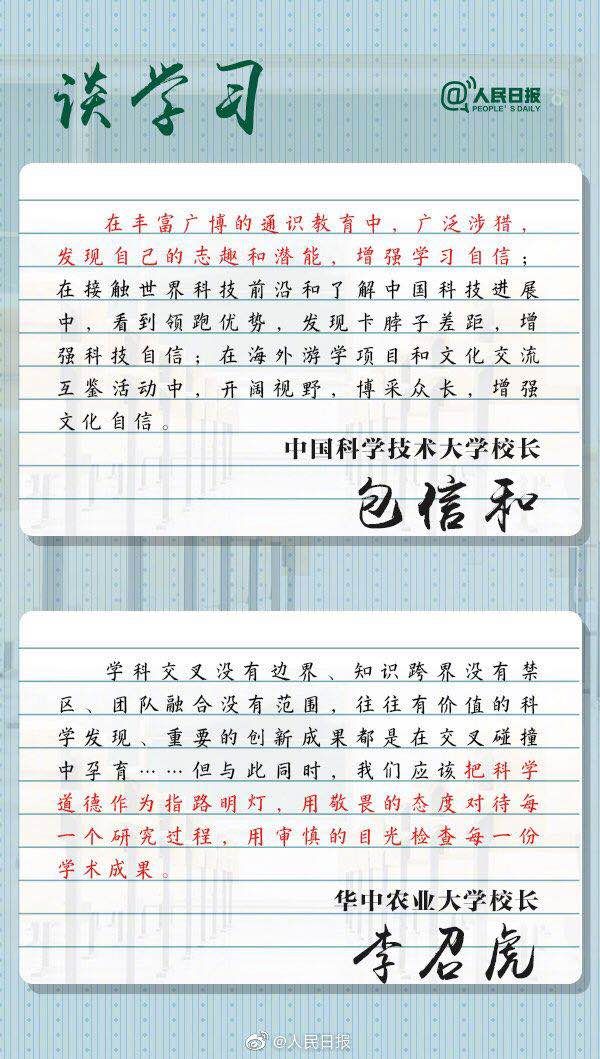 谈学习
@人民日报
PEOPLE'S DAILY
在丰富广博的通识教育中，广泛涉猎，
发现自己的志趣和潜能，增强学习自信；
在接触世界科技前沿和了解中国科技进展
中，看到领跑优势，发现卡脖子差距，增
强科技自信；在海外游学项目和文化交流
互鉴活动中，开阔视野，博采众长，增强
文化自信。
中国科学技术大学校长
包信和
学科交叉没有边界、知识跨界没有禁
区、团队融合没有范围，往往有价值的科
学发现、重要的创新成果都是在交叉碰撞
中孕育……但与此同时，我们应该把科学
道德作为指路明灯，用敬畏的态度对待每
一个研究过程，用审慎的目光检查每一份
学术成果。
华中农业大学校长
李召虎
@人民日报